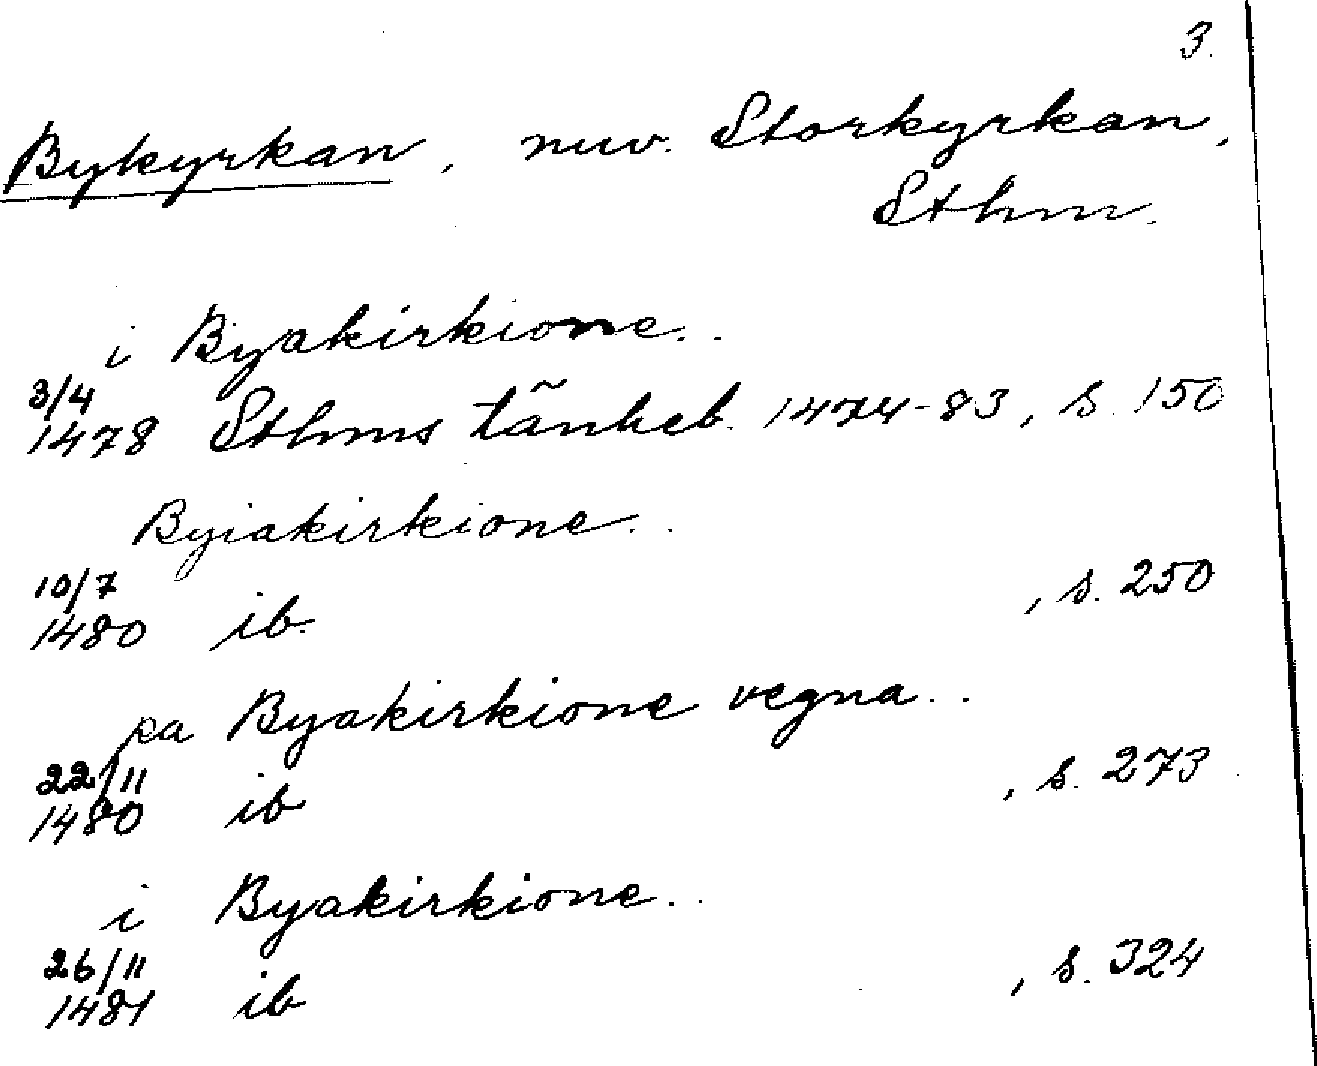 3.
Bykyrkan, nuv. Storkyrkan,
Sthm.
i Byakirkione..
3/4
1478 Sthms tänkeb. 1474-83, s. 150
Byiakirkione..
10/7
1480 ib. , s. 250
pa Byakirkione vegna..
22/11
1480 ib , s. 273
i Byakirkione..
26/11
1481 ib , s. 324